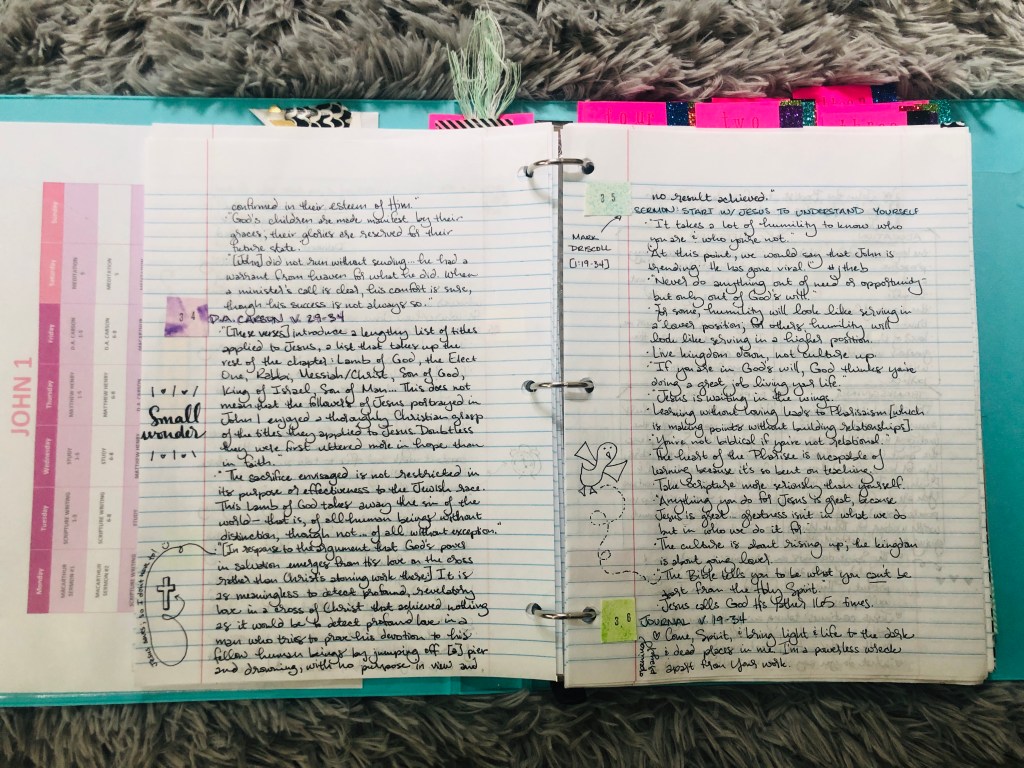 JOHN 1
Sunday
Saturday
MEDITATION
MEDITATION
Friday
D.A. CARSON
D.A. CARSON
Thursday
MATTHEW HENRY
1-5
MATTHEW HENRY
6-8
Wednesday
STUDY
1-5
STUDY
6-8
Tuesday
SCRIPTURE WRITING
1-5
SCRIPTURE WRITING
6-8
Monday
MACARTHUR
SERMON #1
MACARTHUR
SERMON #2
confirmed in their esteem of Him."
·"God's children are made manifest by their
graces; their glories are reserved for their
future state."
·"[John] did not run without sending... he had a
warrant from heaven for what he did. When
a minister's call is clear, his comfort is sure,
though his success is not always so."
34
D.A. CARSON V. 29-34
·"[These verses] introduce a lengthy list of titles
applied to Jesus, a list that takes up the
rest of the chapter: Lamb of God, the Elect
One, Rabbi, Messiah/Christ, Son of God,
King of Israel, Son of Man... This does not
mean that the followers of Jesus portrayed in
John 1 enjoyed a thoroughly Christian grasp
of the titles they applied to Jesus. Doubtless
they were first uttered more in hope than
in faith.
·"The sacrifice envisaged is not restricted in
its purpose or effectiveness to the Jewish race.
This Lamb of God takes away the sin of the
world – that is, of all human beings without
distinction, though not... of all without exception."
·"[In response to the argument that God's power
in salvation emerges from His love on the cross
rather than Christ's atoning work there] It is
as meaningless to detect profound, revelatory
love in a cross of Christ that achieved nothing
as it would be to detect profound love in a
man who tries to prove his devotion to his
fellow human beings by jumping off [a] pier
and drowning, with no purpose in view and
Small
wonder
35
MARK
DRISCOLL
[1:19-34]
no result achieved."
SERMON: START W/ JESUS TO UNDERSTAND YOURSELF
·"It takes a lot of humility to know who
you are & who you're not."
·"At this point, we would say that John is
trending. He has gone viral. #jtheb
·"Never do anything out of need or opportunity
but only out of God's will."
·"For some, humility will look like serving in
a lower position; for others, humility will
look like serving in a higher position.
·Live kingdom down, not culture up.
·"If you're in God's will, God thinks you're
doing a great job living your life."
·"Jesus is waiting in the wings.
·Learning without loving leads to Pharisaism [which
is making points without building relationships].
·"You're not biblical if you're not relational."
·"The heart of the Pharisee is incapable of
learning because it's so bent on teaching.
·Take Scripture more seriously than yourself.
·"Anything you do for Jesus is great, because
Jesus is great... greatness isn't in what we do
but in who we do it for."
·"The culture is about rising up; the kingdom
is about going lower.
·"The Bible tells you to be what you can't be
apart from the Holy Spirit.
·Jesus calls God His Father 165 times.
36
JOURNAL V. 19-34
Come, Spirit, & bring light & life to the dark
& dead places in me. I'm a powerless wreck
apart from Your work.